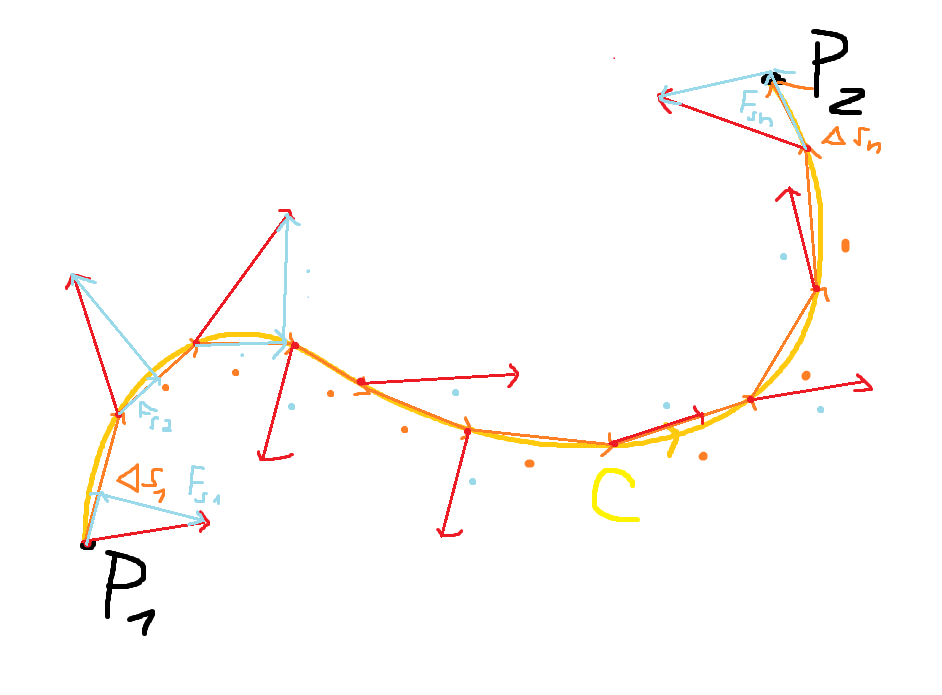 P2
Fsn
Δsn
Fs2
Δs1
Fs1
C
P1